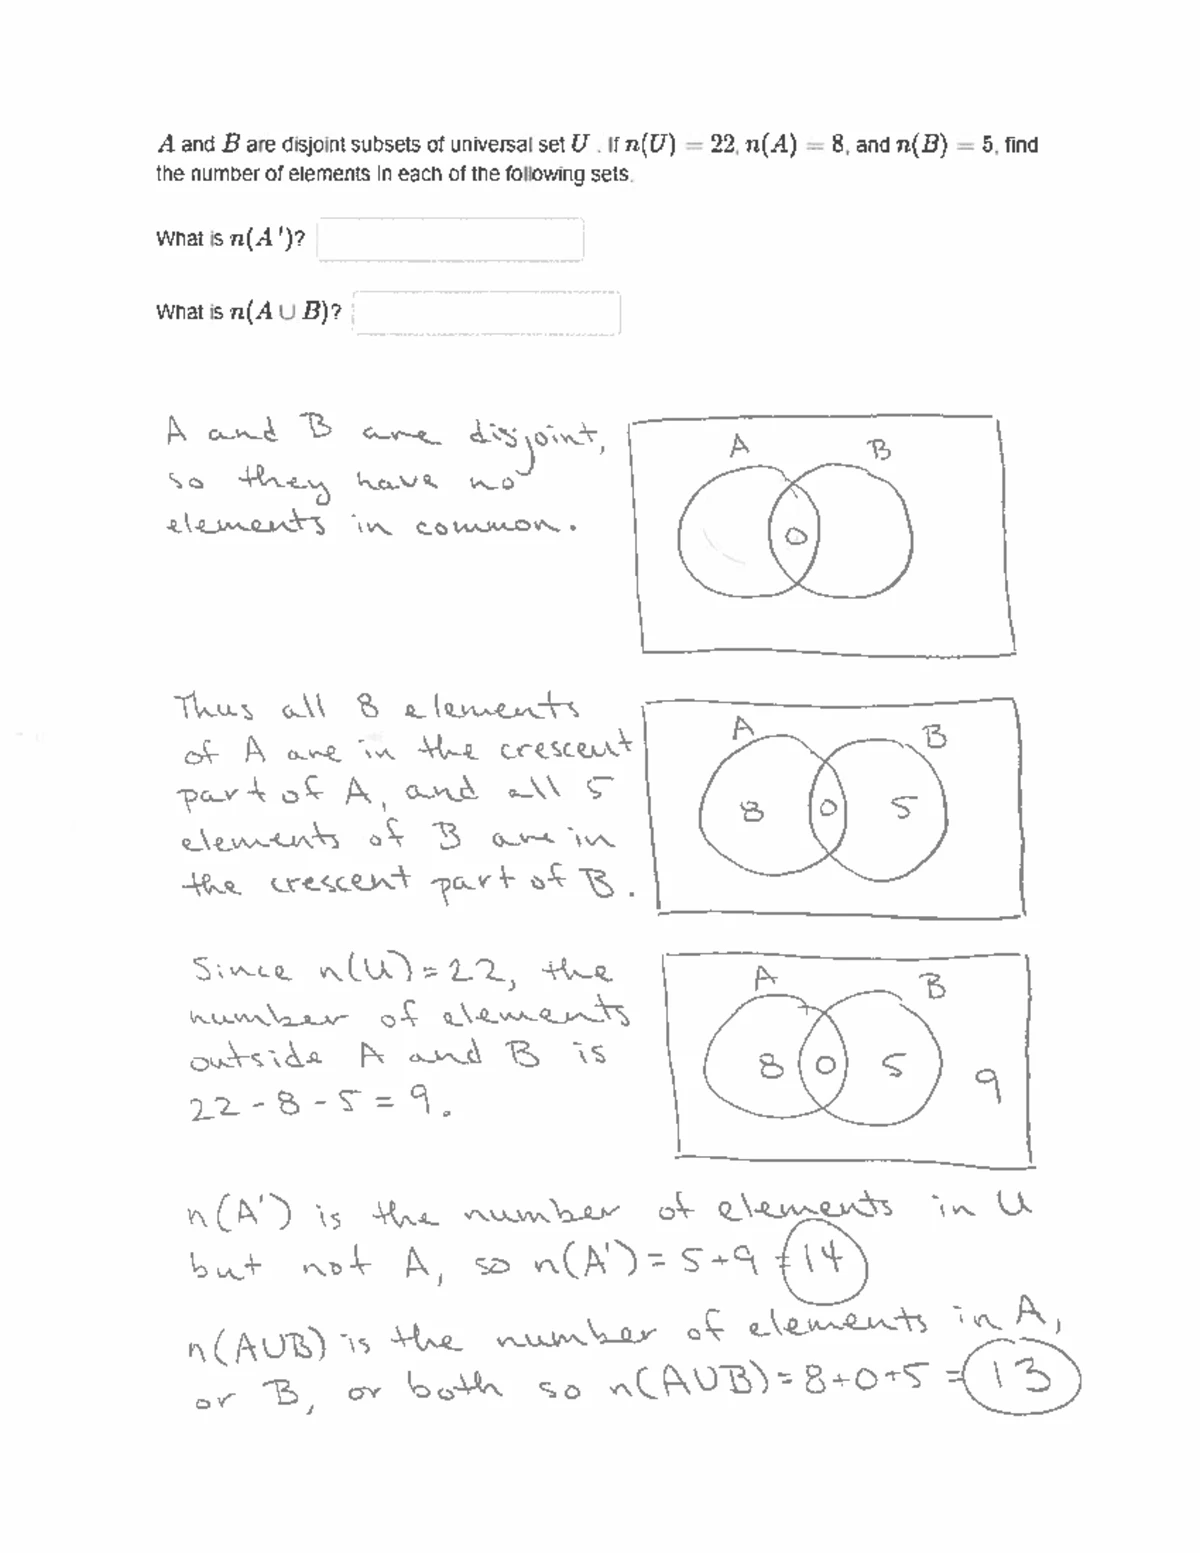 A and B are disjoint subsets of universal set U . If n(U) = 22, n(A) = 8, and n(B) = 5, find
the number of elements in each of the following sets.
What is n(A')?
What is n(A ∪ B)?
A and B are disjoint,
so they have no
elements in common.
A B
0
Thus all 8 elements
of A are in the crescent
part of A, and all 5
elements of B are in
the crescent part of B.
A B
8 0 5
Since n(U)=22, the
number of elements
outside A and B is
22-8-5=9.
A B
8 0 5 9
n(A') is the number of elements in U
but not A, so n(A')=5+9=14
n(A∪B) is the number of elements in A,
or B, or both so n(A∪B)=8+0+5=13